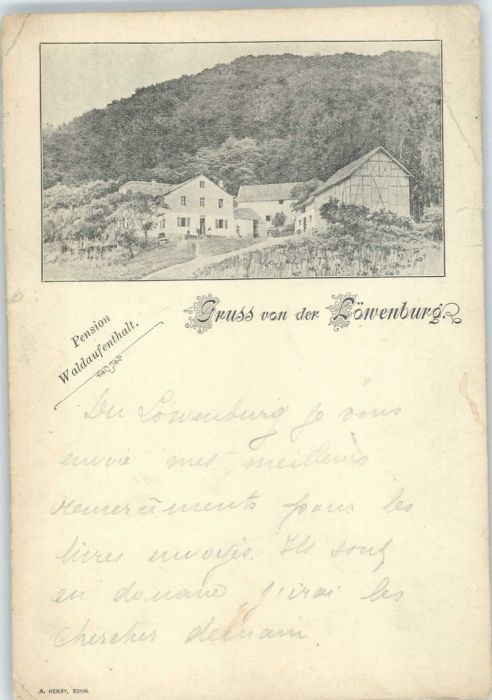 Gruss von der Löwenburg.
Pension
Waldaufenthalt.
Du Löwenburg je vous
envoie mes meilleurs
remerciments pour les
livres envoyés. Ils sont
en douane, j'irai les
chercher demain
A. HENRY, BONN.